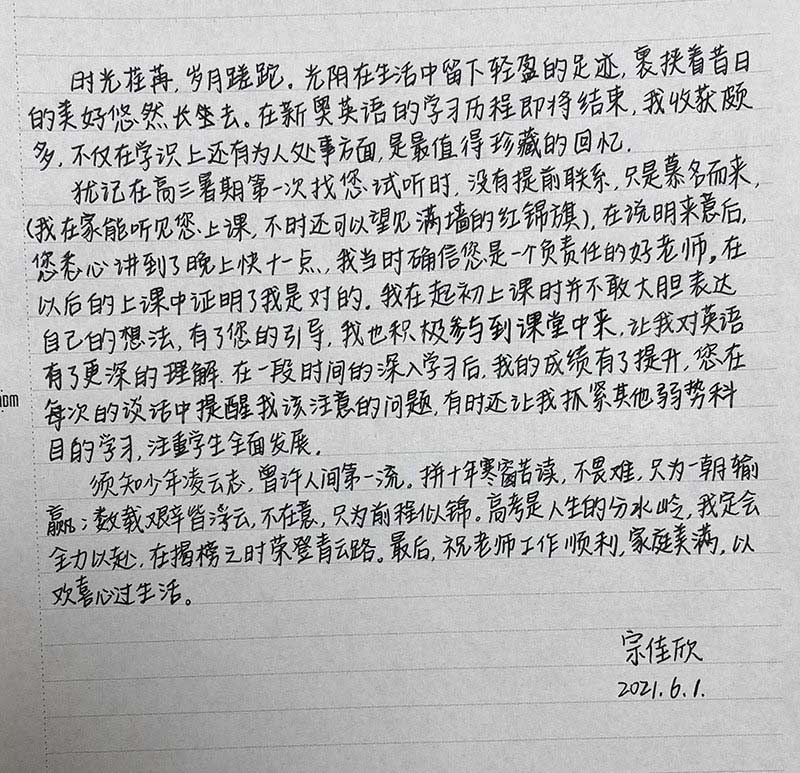 时光荏苒,岁月蹉跎。光阴在生活中留下轻盈的足迹,裹挟着昔日
的美好悠然长坐去。在新奥英语的学习历程即将结束,我收获颇
多,不仅在学识上还有为人处事方面,是最值得珍藏的回忆.
犹记在高三暑期第一次找您试听时,没有提前联系,只是慕名而来,
(我在家能听见您上课,不时还可以望见满墙的红锦旗),在说明来意后,
您悉心讲到了晚上快十一点,我当时确信您是一个负责任的好老师。在
以后的上课中证明了我是对的。我在起初上课时并不敢大胆表达
自己的想法,有了您的引导,我也积极参与到课堂中来,让我对英语
有了更深的理解.在一段时间的深入学习后,我的成绩有了提升,您在
每次的谈话中提醒我该注意的问题,有时还让我抓紧其他弱势科
目的学习,注重学生全面发展.
须知少年凌云志,曾许人间第一流。拼十年寒窗苦读,不畏难,只为一朝输
赢;数载艰辛皆浮云,不在意,只为前程似锦。高考是人生的分水岭,我定会
全力以赴,在揭榜之时荣登青云路。最后,祝老师工作顺利,家庭美满,以
欢喜心过生活。
宗佳欣
2021.6.1.